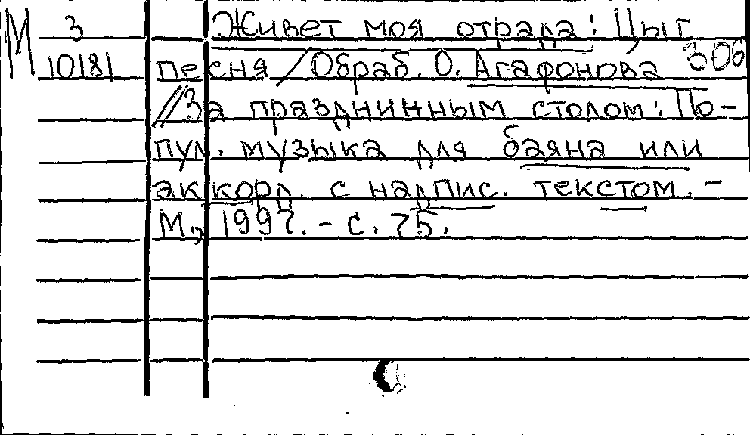 М 3 Живет моя отрада: Цыг.
10181 песня / Обраб. О. Агафонова 306
// За праздничным столом: По-
пул. музыка для баяна или
аккорд. с надпис. текстом. -
М., 1997. - с. 75.